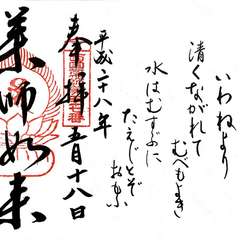 いわねより
清くながれて
むべもよき
水はむすぶに
たえじとぞ
おもふ
平成二十八年
奉拝 五月十八日
薬師如来